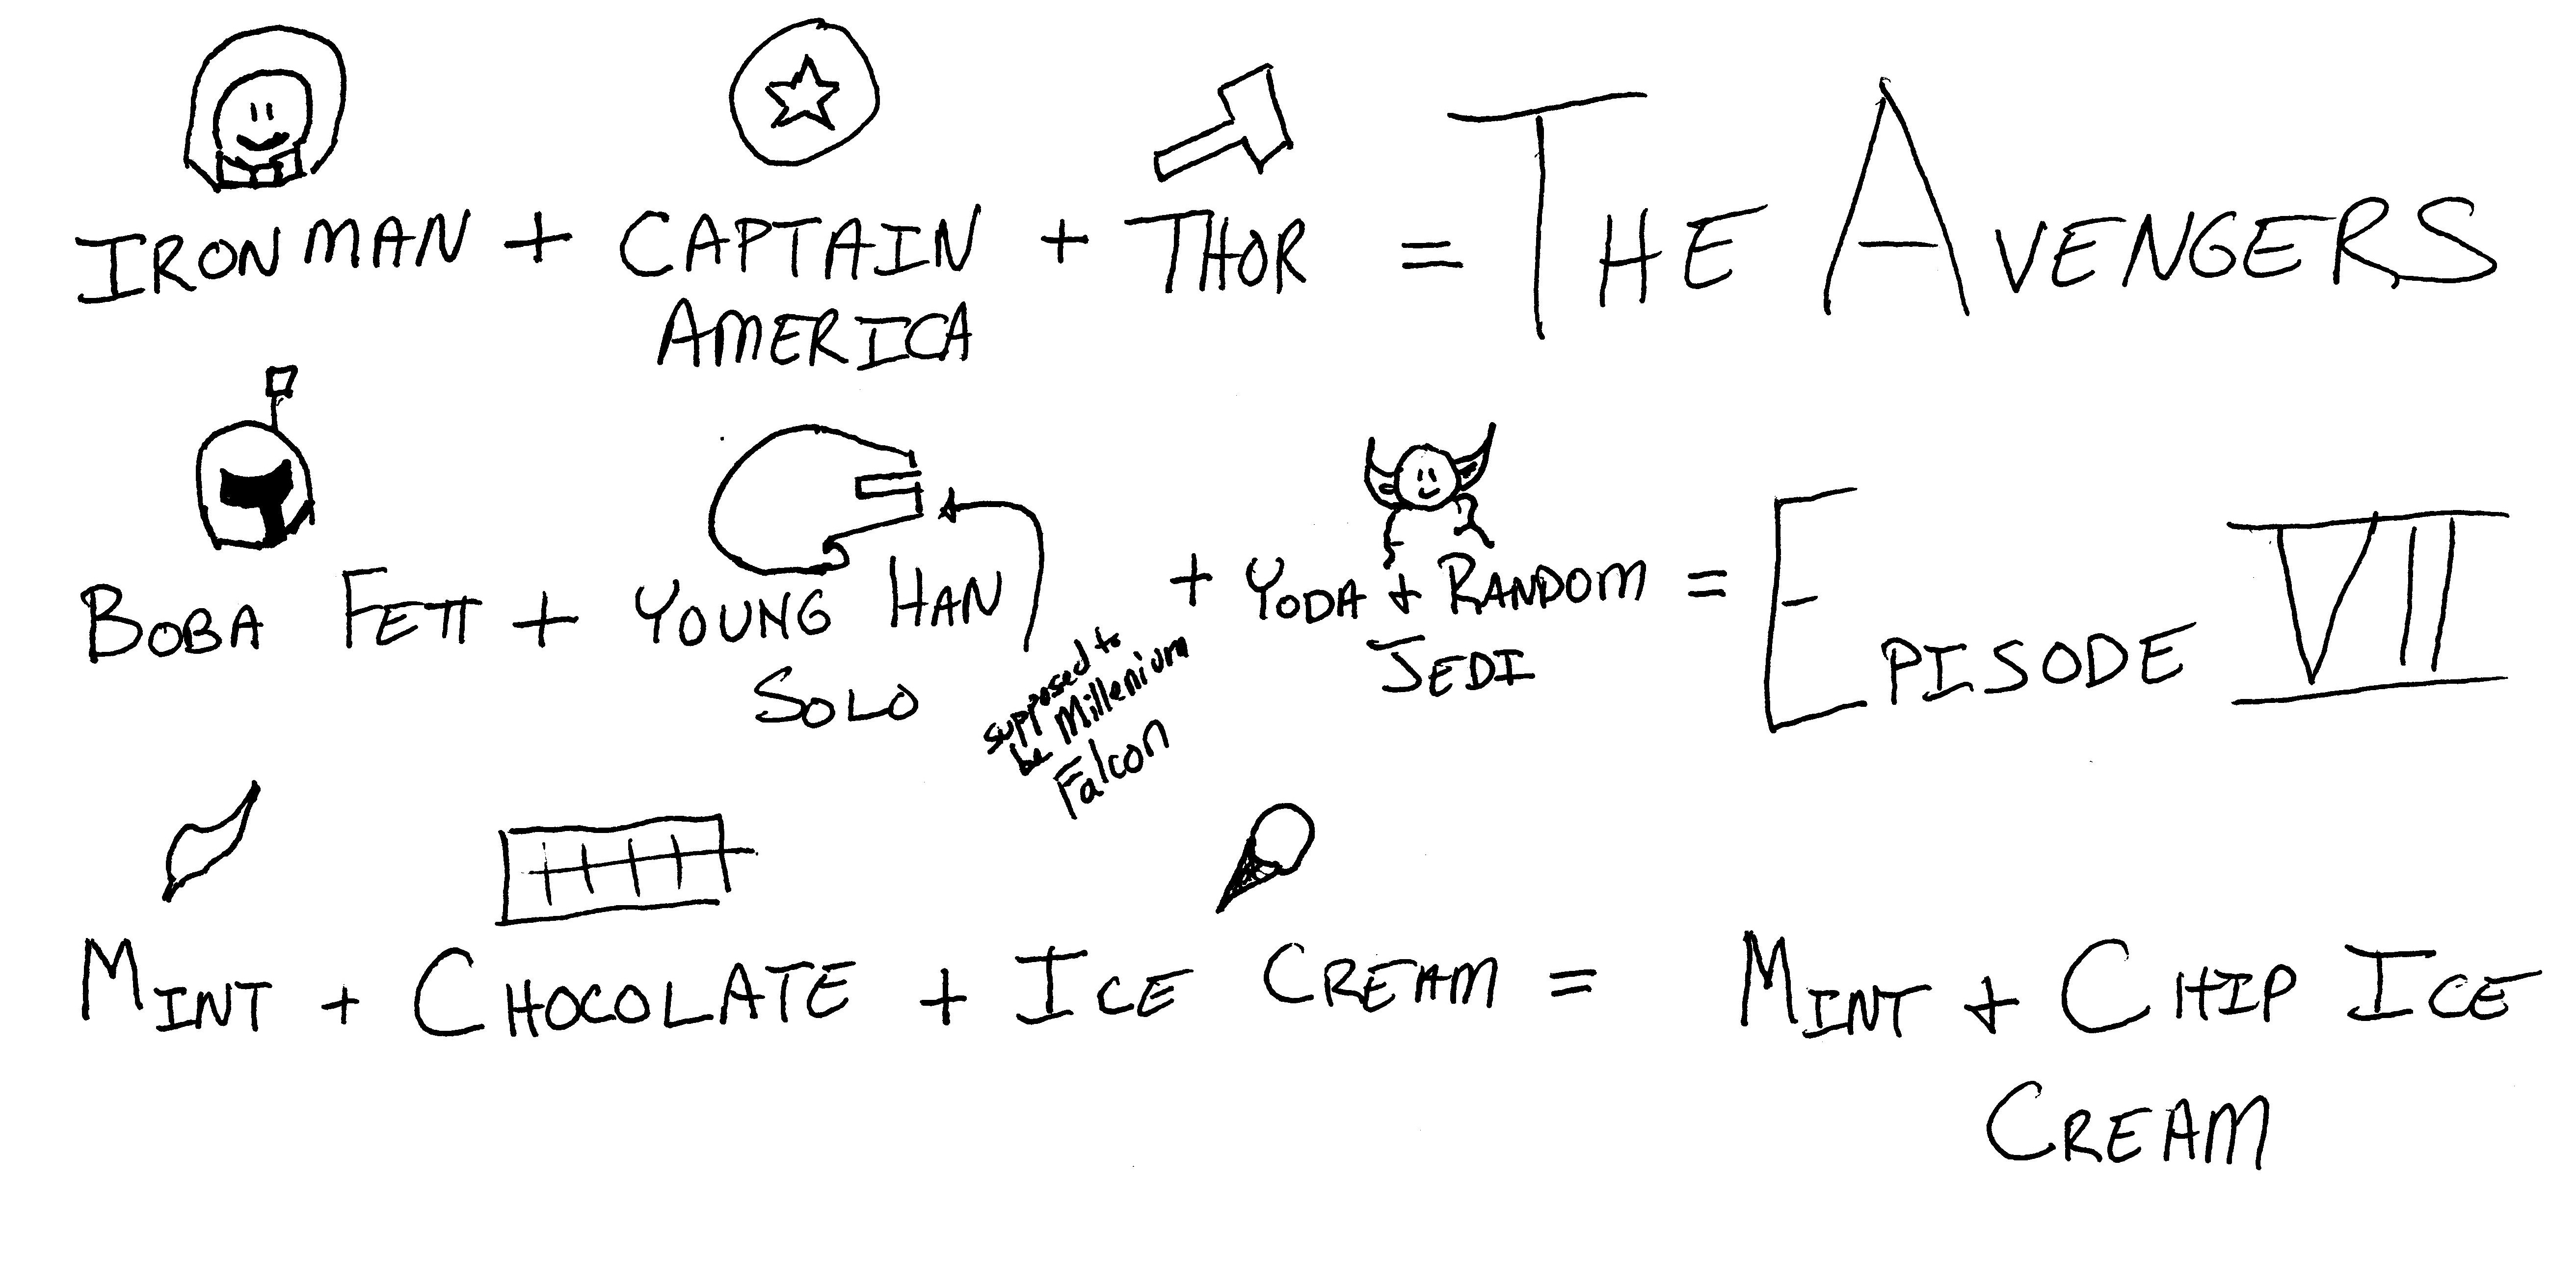 IRON MAN + CAPTAIN + THOR = THE AVENGERS
AMERICA
BOBA FETT + YOUNG HAN + YODA + RANDOM = EPISODE VII
SOLO
JEDI
supposed to
be Millenium
Falcon
MINT + CHOCOLATE + ICE CREAM = MINT + CHIP ICE
CREAM